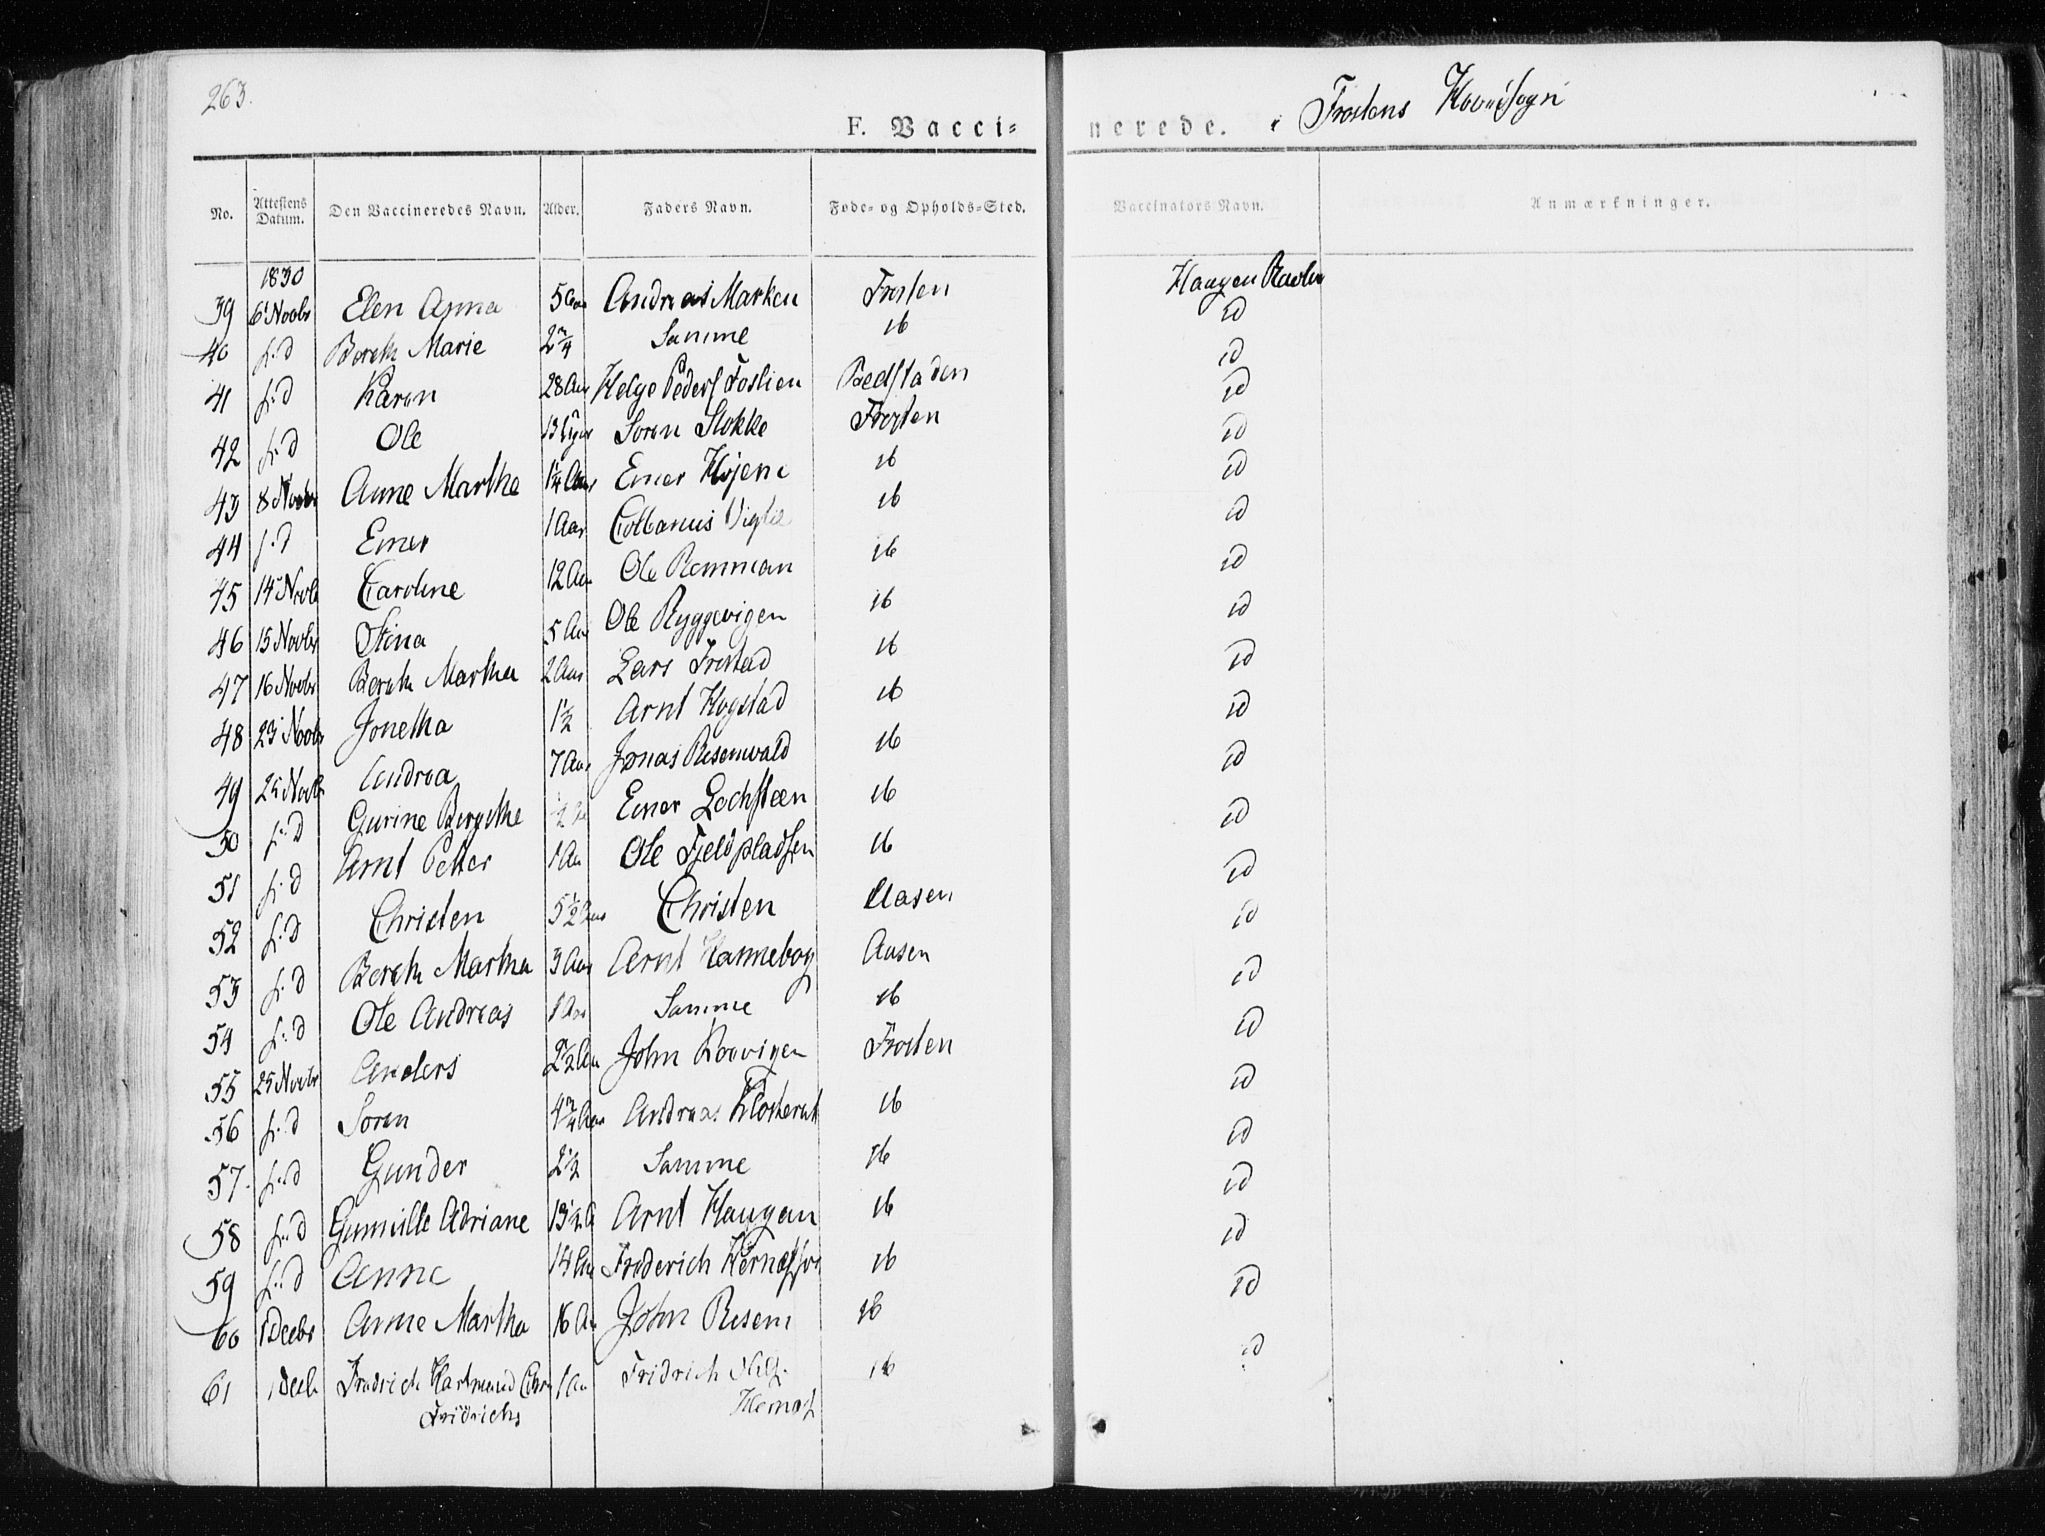 263.
F. Vacci=
nerede. i Frostens Hovedsogn
No. Attestens Datum. Den Vaccineredes Navn. Alder. Faders Navn. Føde- og Opholds-Sted. Vaccinators Navn. Anmærkninger.
1830
39 6t Novbr Elen Anna 5 Aar Andreas Marken Frosten Haugen
40 s:d Bereth Marie 2 3/4 Samme ib id
41 s:d Karen 28 Aar Helge Peders Foslien Bedstaden id
42 s:d Ole 13 Soren Stokke Frosten id
43 8 Novbr Anne Martha 1 1/4 Aar Emer Hojem ib id
44 s:d Emer 1 Aar Colbanus Vigtil ib id
45 14 Novb Caroline 12 Aar Ole Remman ib id
46 15 Novbr Stina 5 Aar Ole Ryggevigen ib id
47 16 Novbr Bereth Martha 2 Aar Lars Frostad ib id
48 23 Novbr Jonetha 1 1/2 Arnt Hogstad ib id
49 24 Novb Andrea 7 Aar Jonas Risenwald ib id
50 s:d Gurine Bergithe Emer Lochsteen ib id
51 s:d Arnt Petter 1 Aar Ole Fjeldpladsen ib id
52 s:d Christen 5 1/2 Aar Christen Aasen id
53 s:d Bereth Martha 3 Aar Arnt Hammebog Aasen id
54 s:d Ole Andreas 1 Aar Samme ib id
55 25 Novbr Anders 2 1/2 Aar John Roovigen Frosten id
56 s:d Soren 4 3/4 Aar Andreas ib id
57. s:d Gunder 2 1/2 Samme ib id
58 s:d Gunnille Adriane 13 1/2 A Arnt Haugan ib id
59 s:d Anne 14 Aar Friderich ib id
60 1 Decbr Anne Martha 16 Aar John Risem ib id
61 1 Decb Fredrich Hartmand 1 Aar Fridrich ib id
Fridrichs